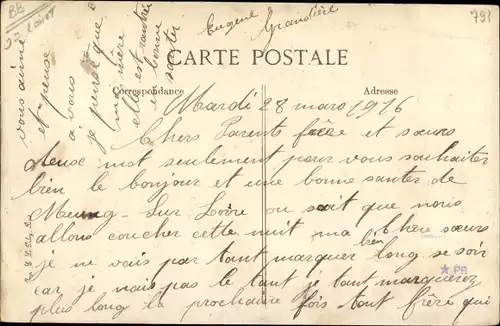 BB
791
Eugene Grandière
CARTE POSTALE
Correspondance
Adresse
Mardi 28 mars 1916
Chers Parents frère et sœurs
deuse mot seulement pour vous souhaiter
bien le bonjour et une bonne santes de
Meung-Sur Loire ou sait que nous
allons coucher cette nuit ma Chere sœurs
je ne vais par tant marquer bien long se soir
car je nais pas le tant je tant marquerez
plus long la prochaine fois tout frère qui
vous aime
et pense
a vous
je pense que
ma mère
elle est rentré
en bonne
santer
PB